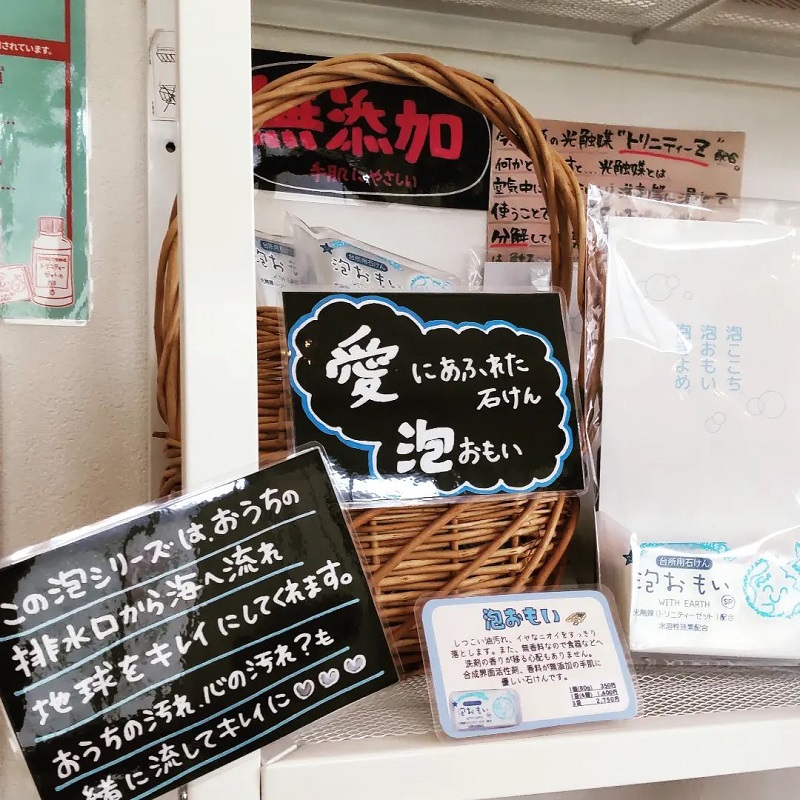 されています。
無添加
手肌にやさしい
の光触媒"トリニティーZ"配合。
何かと
すと…光触媒とは
空気中に
使うことで
分解して
台所用石けん
泡おもい
台所用石けん
泡おもい
愛にあふれた
石けん
泡おもい
泡ここち
泡おもい
泡きよめ、
台所用石けん
泡おもい
WITH EARTH
光触媒(トリニティーゼット)配合
水溶性珪素配合
この泡シリーズは、おうちの
排水口から海へ流れ
地球をキレイにしてくれます。
おうちの汚れ、心の汚れ?も
緒に流してキレイに
泡おもい
しつこい油汚れ、イヤなニオイをすっきり
落とします。また、無香料なので食器などへ
洗剤の香りが移る心配もありません。
合成界面活性剤、香料が無添加の手肌に
優しい石けんです。
1個(80g) 350円
1袋(4個) 1,400円
3袋 2,750円
泡おもい
トリニティー
ゼット